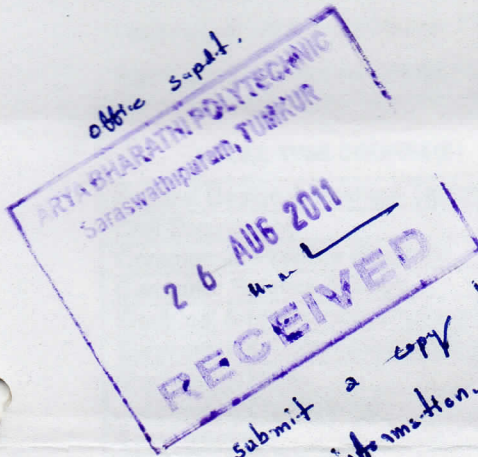 office supdt.
ARYA BHARATHI POLYTECHNIC
Saraswathipuram, TUMKUR
26 AUG 2011
RECEIVED
submit a copy
information.